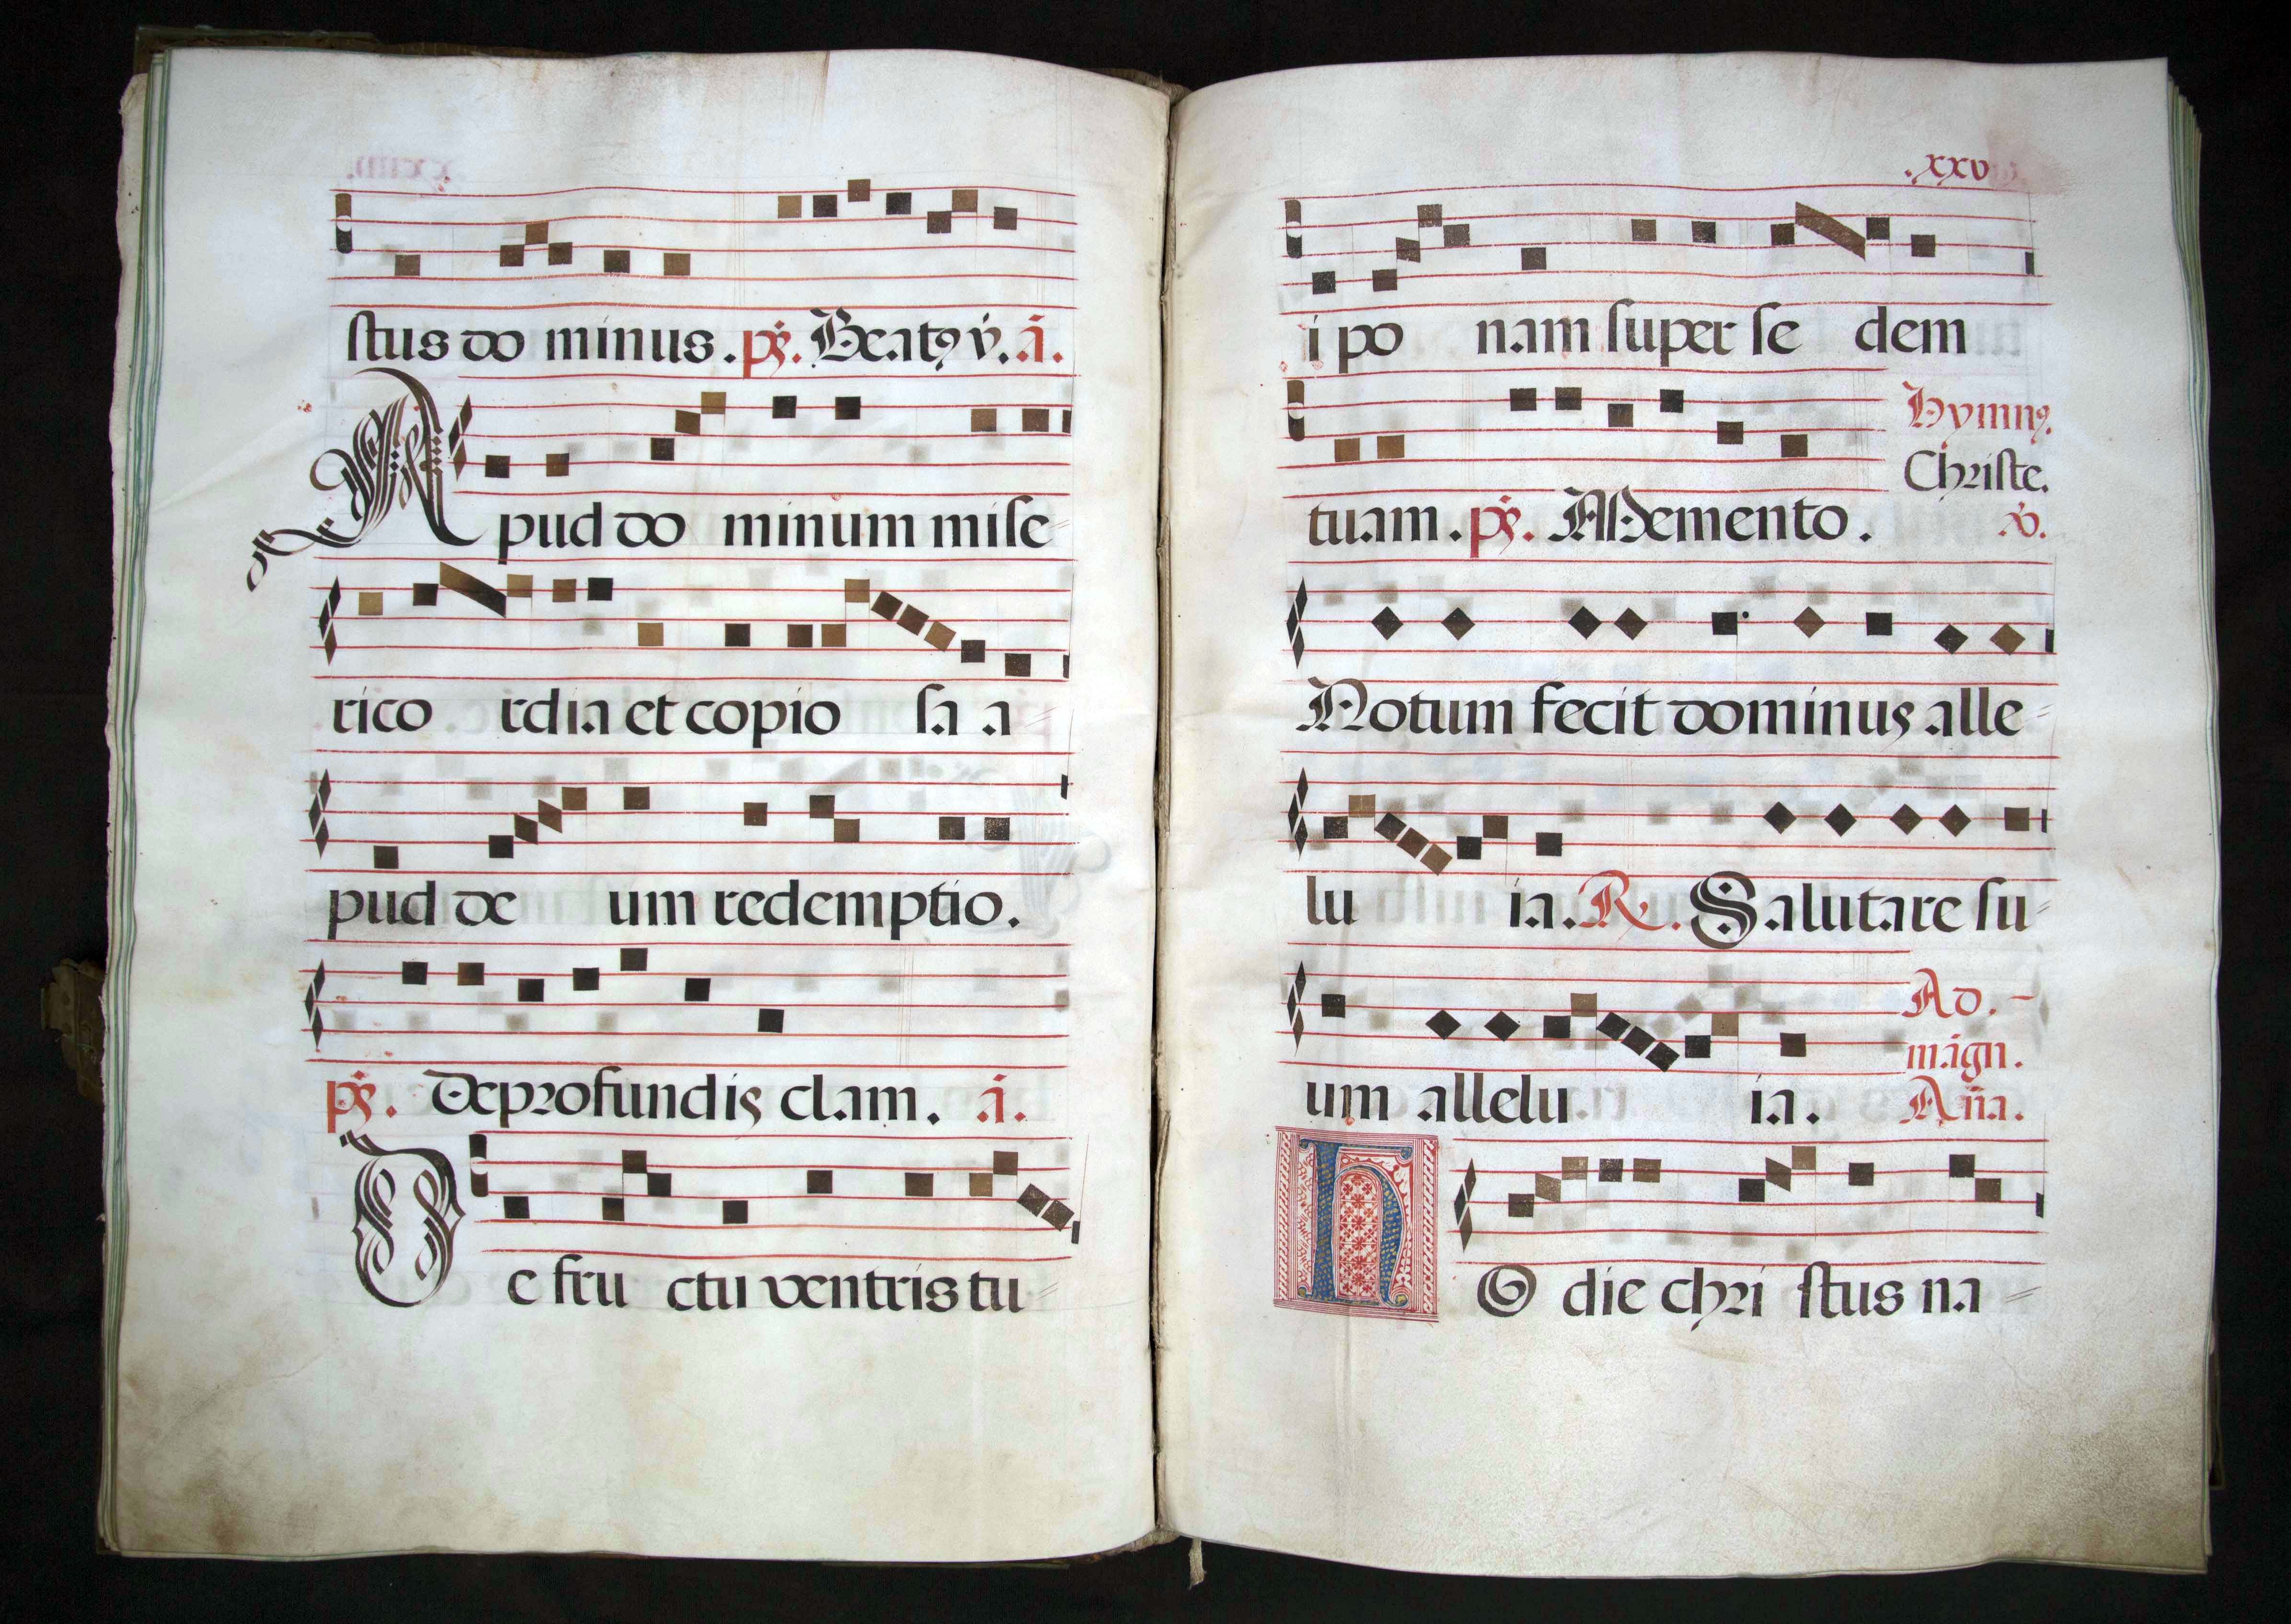 stus do minus. ps. Beatꝰ v. ā.
Apud do minum mise
rico rdia et copio sa a
pud de um redemptio.
ps. De profundis clam. ā.
De fru ctu ventris tu
.xxv
i po nam super se dem
Hymnꝰ.
Christe.
tuam. ps. Memento. v.
Notum fecit dominus alle
lu ia. R. Salutare su
Ad.
um allelu ia.
māgn.
Aña.
hO die chri stus na